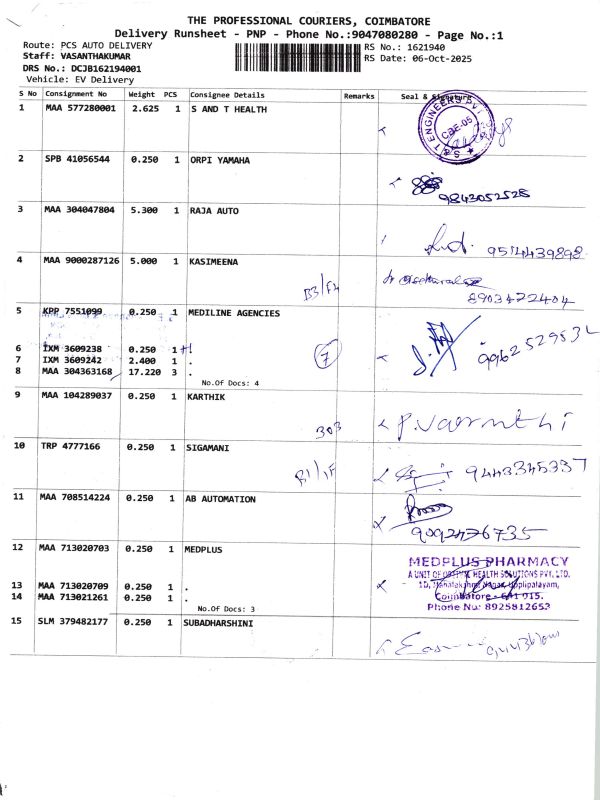 THE PROFESSIONAL COURIERS, COIMBATORE
Delivery Runsheet - PNP - Phone No.:9047080280 - Page No.:1
Route: PCS AUTO DELIVERY
RS No.: 1621940
Staff: VASANTHAKUMAR
RS Date: 06-Oct-2025
DRS No.: DCJB162194001
Vehicle: EV Delivery
S No Consignment No Weight PCS Consignee Details Remarks Seal & Signature
1 MAA 577280001 2.625 1 S AND T HEALTH
S & T ENGINEERS PVT
CBE-05
2 SPB 41056544 0.250 1 ORPI YAMAHA
9843052528
3 MAA 304047804 5.300 1 RAJA AUTO
9514439898
4 MAA 9000287126 5.000 1 KASIMEENA
B3/F4
8903472404
5 KPP 7551099 0.250 1 MEDILINE AGENCIES
9962529532
6 IXM 3609238 0.250 1 !
7 IXM 3609242 2.400 1 .
7
8 MAA 304363168 17.220 3 .
No.Of Docs: 4
9 MAA 104289037 0.250 1 KARTHIK
303
P. Vasanthi
10 TRP 4777166 0.250 1 SIGAMANI
B1/1F
9443345337
11 MAA 708514224 0.250 1 AB AUTOMATION
9092476735
12 MAA 713020703 0.250 1 MEDPLUS
MEDPLUS PHARMACY
A UNIT OF OPTIVAL HEALTH SOLUTIONS PVT. LTD.
13 MAA 713020709 0.250 1 .
Uppilipalayam,
14 MAA 713021261 0.250 1 .
Coimbatore - 641 015.
No.Of Docs: 3
Phone No: 8925812653
15 SLM 379482177 0.250 1 SUBADHARSHINI